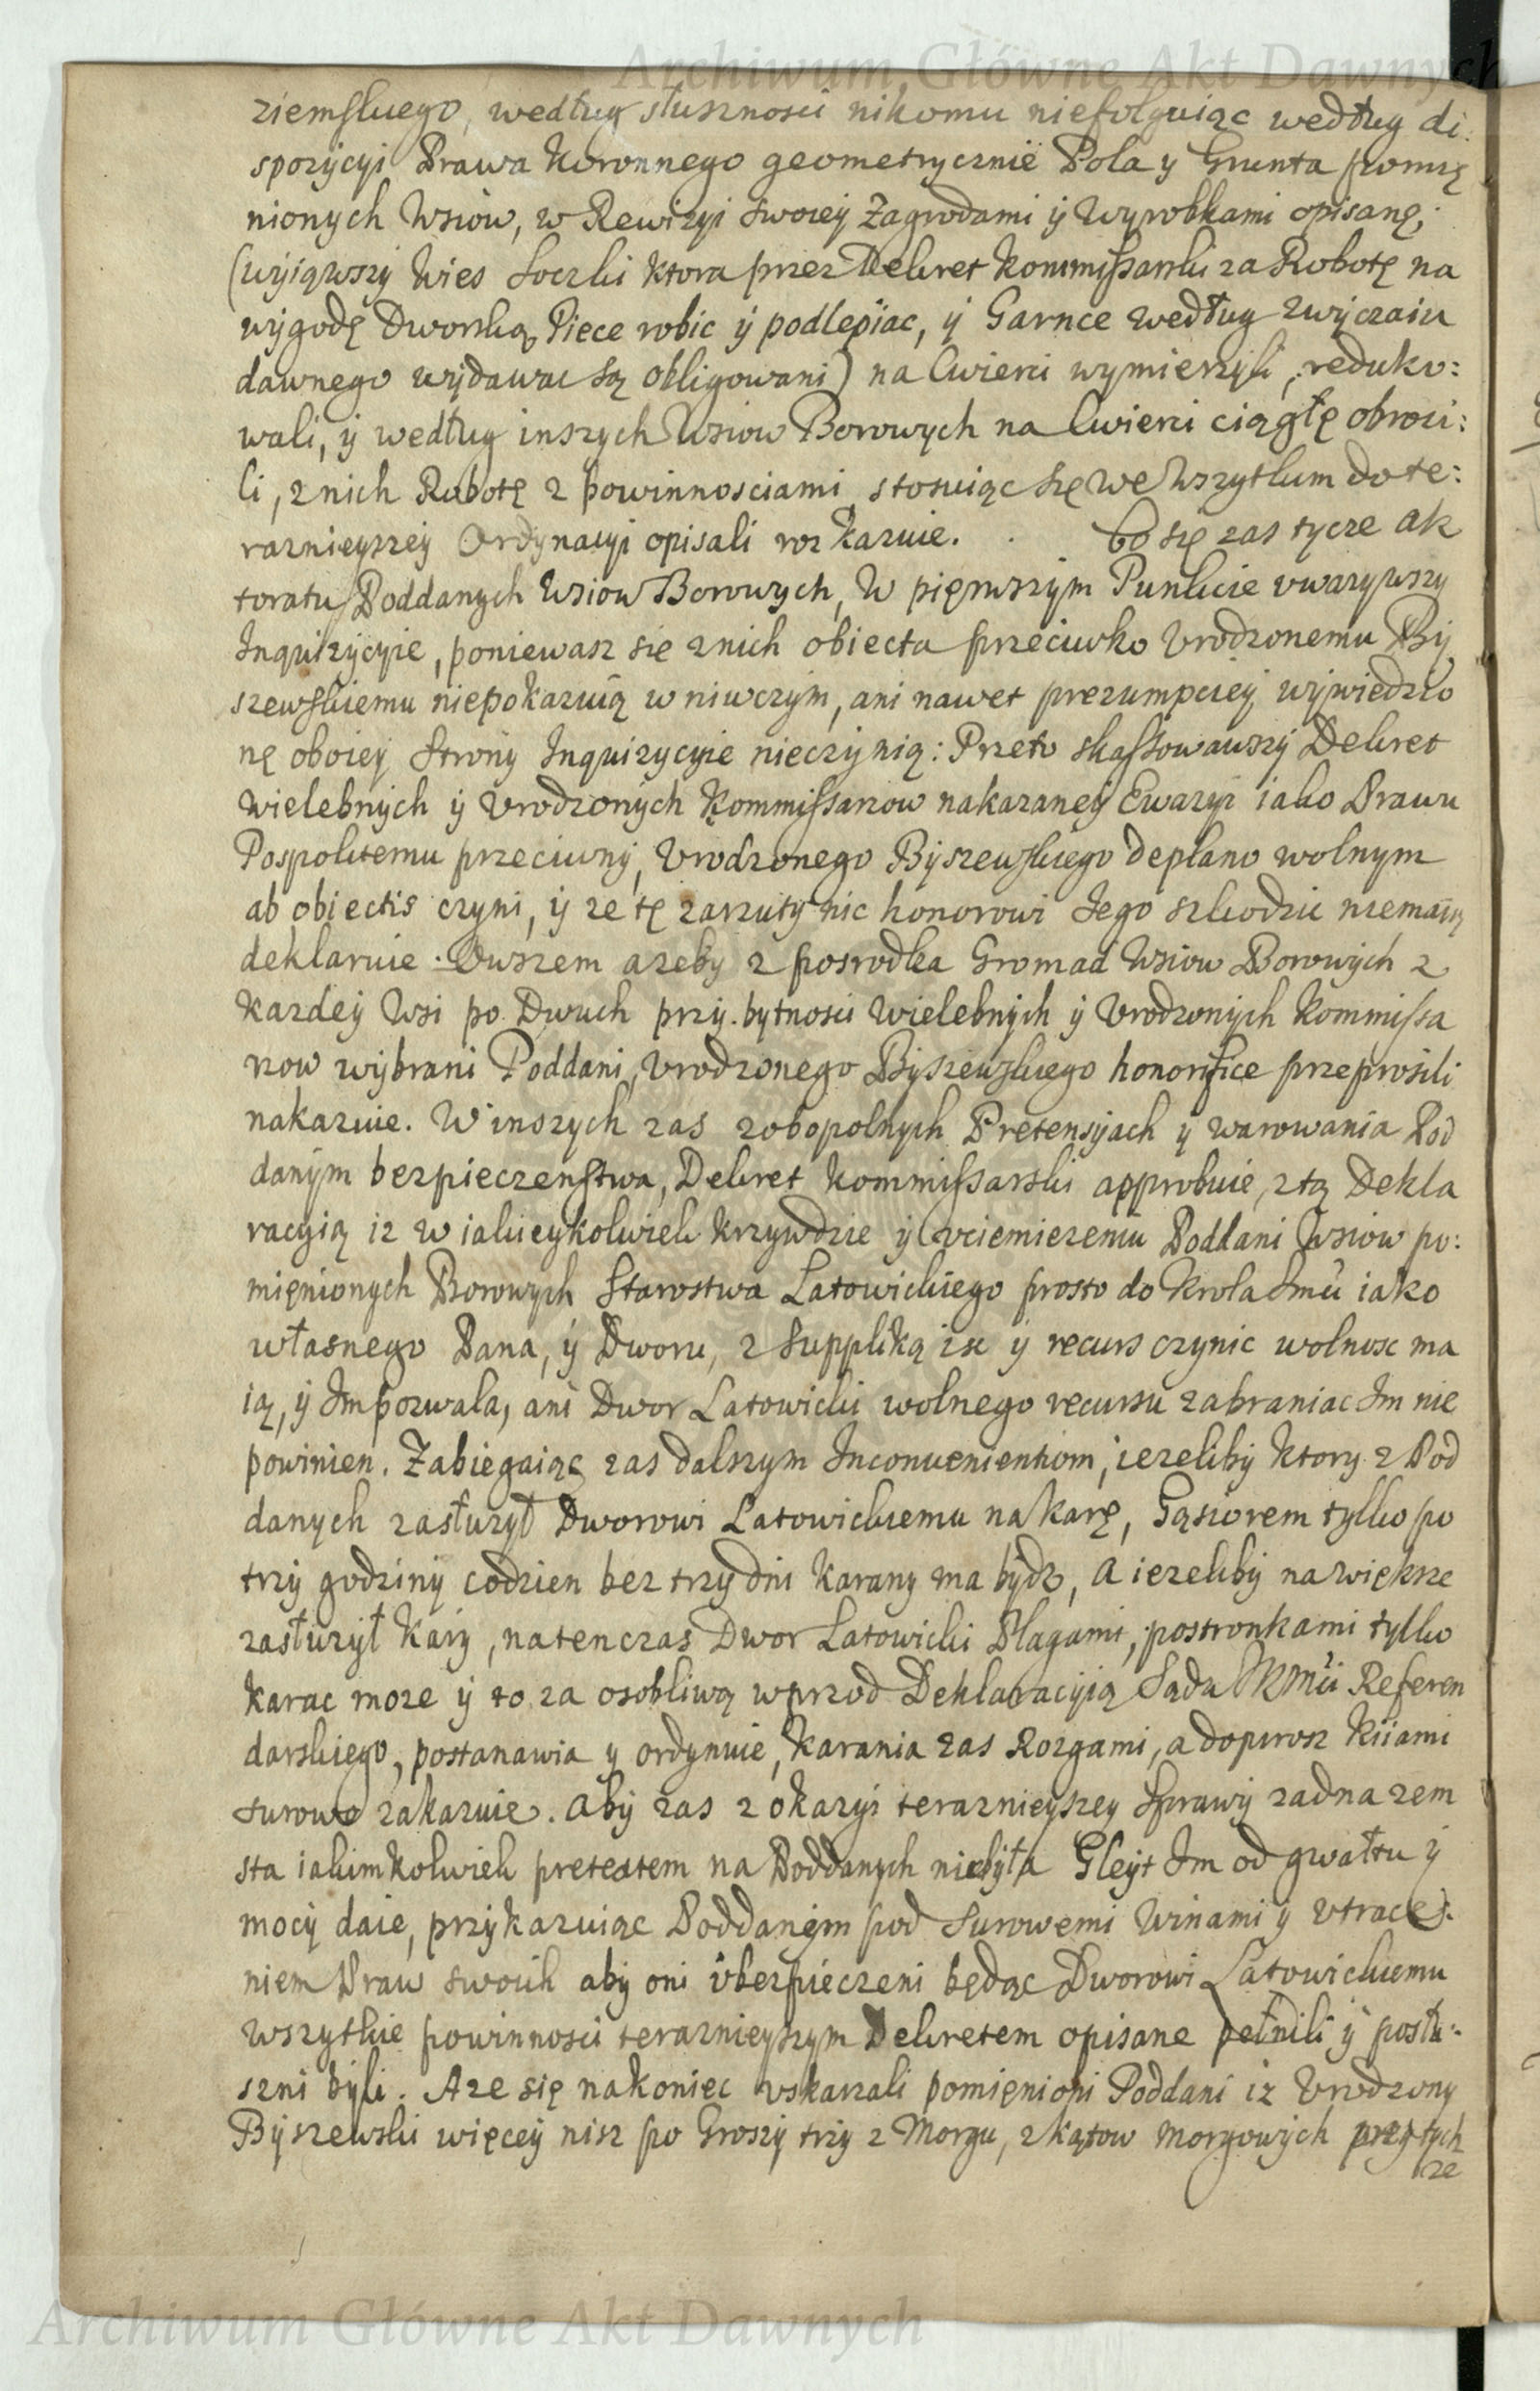 Archiwum Główne Akt Dawnych
ziemskiego, według słusznosci nikomu niefolguiąc według di:
spozycyi Prawa Koronnego geometrycznie Pola y Grunta pomię
nionych Wsiow, w Rewizyi swoiey Zagrodami ÿ Wyrobkami opisanę,
(wyiąwszy Wies Soczki ktora przez Dekret Kommissarski za Robotę na
wygodę Dworską Piece robic ÿ podlepiac, ÿ Garnce według zwyczaiu
dawnego wydawac są obligowani) na Cwierci wymierzyli, reduko:
wali, ÿ według inszych Wsiow Borowych na Cwierci ciągłę obroci:
li, z nich Robotę z powinnosciami, stosuiąc się we Wszytkim do te:
raznieyszey Ordynacyi opisali rozkazuie. Co się zas tycze ak
toratu Poddanych Wsiow Borowych, W pięrwszym Punkcie uwazywszy
Inquizycyie, poniewasz się z nich obiecta przeciwko Vrodzonemu By
szewskiemu niepokazuią w niwczym, ani nawet prezumpciey wywiedzio
nę oboiey Strony Inquizycyie nieczynią: Przeto skassowawszy Dekret
Wielebnych ÿ Vrodzonych Kommissarzow nakazaney Ewazyi iako Prawu
Pospolitemu przeciwny, Vrodzonego Byszewskiego deplano wolnym
ab obiectis czyni, ÿ ze tę zarzuty nic honorowi Jego szkodzic niemaią
deklaruie. Owszem azeby z posrodka Gromad Wsiow Borowych z
kazdey Wsi po Dwuch przy bytnosci Wielebnych ÿ Vrodzonych Kommissa
rzow wybrani Poddani, Vrodzonego Byszewskiego honorifice przeprosili
nakazuie. W inszych zas zobopolnych Pretensyach y warowania Pod
danym bezpieczenstwa, Dekret Kommissarski approbuie, z tą Dekla
racyią iz w iakieykolwiek krzywdzie ÿ vciemiezeniu Poddani Wsiow po:
mięnionych Borowych Starostwa Latowickiego prosto do Krola Jmci iako
własnego Pana, ÿ Dworu, z Suppliką isc ÿ recurs czynic wolnosc ma
ią, ÿ Im pozwala, ani Dwor Latowicki wolnego recursu zabraniac Im nie
powinien. Zabiegaiąc zas dalszym Inconuenientiom, iezeliby ktory z Pod
danych zasłuzył Dworowi Latowickiemu na karę, Gąsiorem tylko po
trzy godziny codzien bez trzy dni karany ma bydz, a iezeliby na większe
zasłuzył kary, natenczas Dwor Latowicki Plagami, postronkami tylko
karac moze ÿ to za osobliwą wprzod Deklaracyią Sądu JKMci Referen
darskiego, postanawia y ordynuie, karania zas Rozgami, a dopirosz kiiami
surowo zakazuie. Aby zas z okazyi teraznieyszey Sprawy zadna zem
sta iakimkolwiek pretextem na Poddanych niebyła Gleyt Im od gwałtu ÿ
mocy daie, przykazuiąc Poddanym pod surowemi Winami ÿ vtrace:
niem Praw swoich aby oni vbezpieczeni będąc Dworowi Latowickiemu
wszytkie powinnosci teraznieyszym Dekretem opisane pełnili ÿ posłu:
szni byli. A ze się nakoniec vskarzali pomięnioni Poddani iz Vrodzony
Byszewski więcey nisz po Groszy trzy z Morgu, z kątow Morgowych przy tych
ze
Archiwum Główne Akt Dawnych